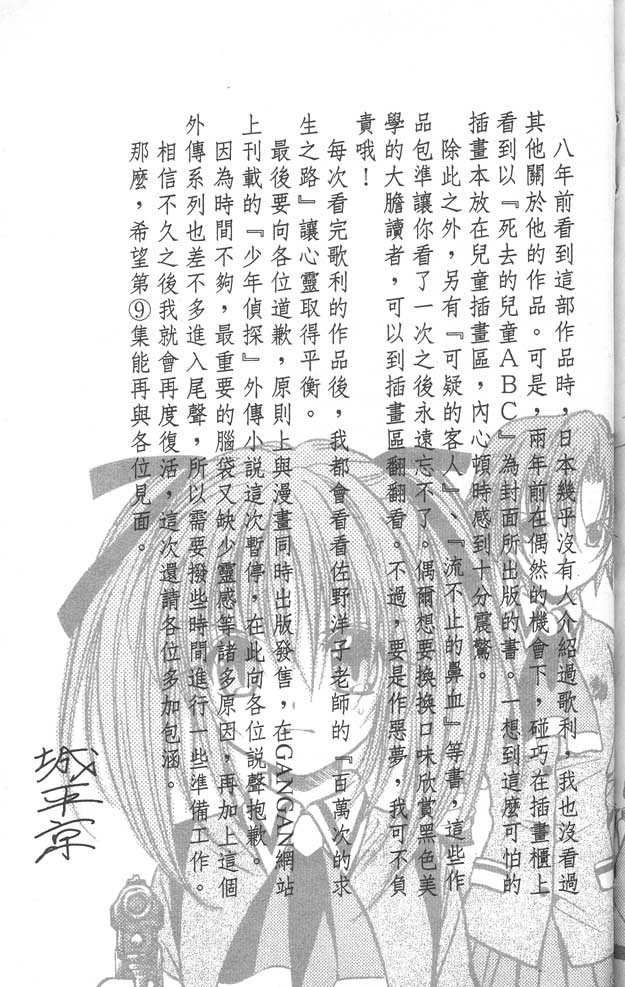 八年前看到這部作品時，日本幾乎沒有人介紹過歌利，我也沒看過
其他關於他的作品。可是，兩年前在偶然的機會下，碰巧在插畫櫃上
看到以『死去的兒童ABC』為封面所出版的書。一想到這麼可怕的
插畫本放在兒童插畫區，內心頓時感到十分震驚。
除此之外，另有『可疑的客人』、『流不止的鼻血』等書，這些作
品包準讓你看了一次之後永遠忘不了。偶爾想要換換口味欣賞黑色美
學的大膽讀者，可以到插畫區翻翻看。不過，要是作惡夢，我可不負
責哦！
每次看完歌利的作品後，我都會看看佐野洋子老師的『百萬次的求
生之路』讓心靈取得平衡。
最後要向各位道歉，原則上與漫畫同時出版發售，在GANGAN網站
上刊載的『少年偵探』外傳小說這次暫停，在此向各位說聲抱歉。
因為時間不夠，最重要的腦袋又缺少靈感等諸多原因，再加上這個
外傳系列也差不多進入尾聲，所以需要撥些時間進行一些準備工作。
相信不久之後我就會再度復活，這次還請各位多加包涵。
那麼，希望第⑨集能再與各位見面。
城平京